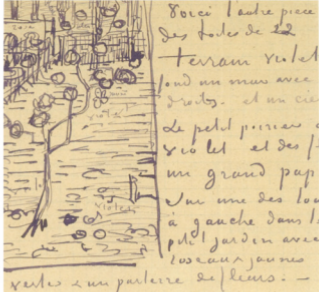 Voici l'autre piece
des toiles de 22
terrain violet
fond un mur avec
droits. et un cie
Le petit poirier
violet et des f
un grand pap
Sur une des tou
à gauche dans l
petit jardin avec
roseaux jaunes
vertes & un parterre de fleurs. —
violet
violet